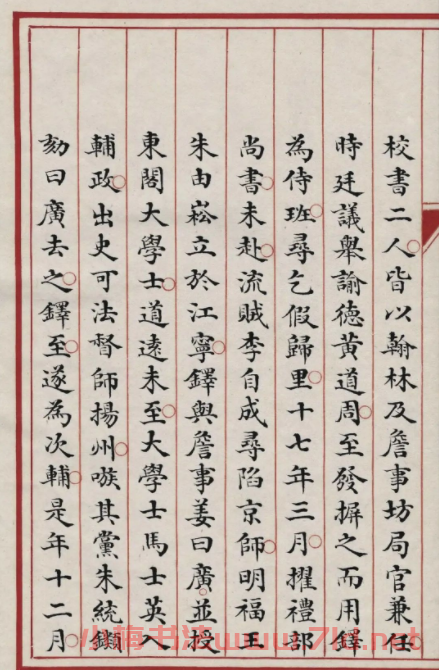 校書二人皆以翰林及詹事坊局官兼任
時廷議舉諭德黃道周至發摒之而用鐸
為侍班尋乞假歸里十七年三月擢禮部
尚書未赴流賊李自成尋陷京師明福王
朱由崧立於江寧鐸與詹事姜曰廣並授
東閣大學士道遠未至大學士馬士英入
輔政出史可法督師揚州嗾其黨朱統𨰥
劾曰廣去之鐸至遂為次輔是年十二月
小楷书法www.7k.net